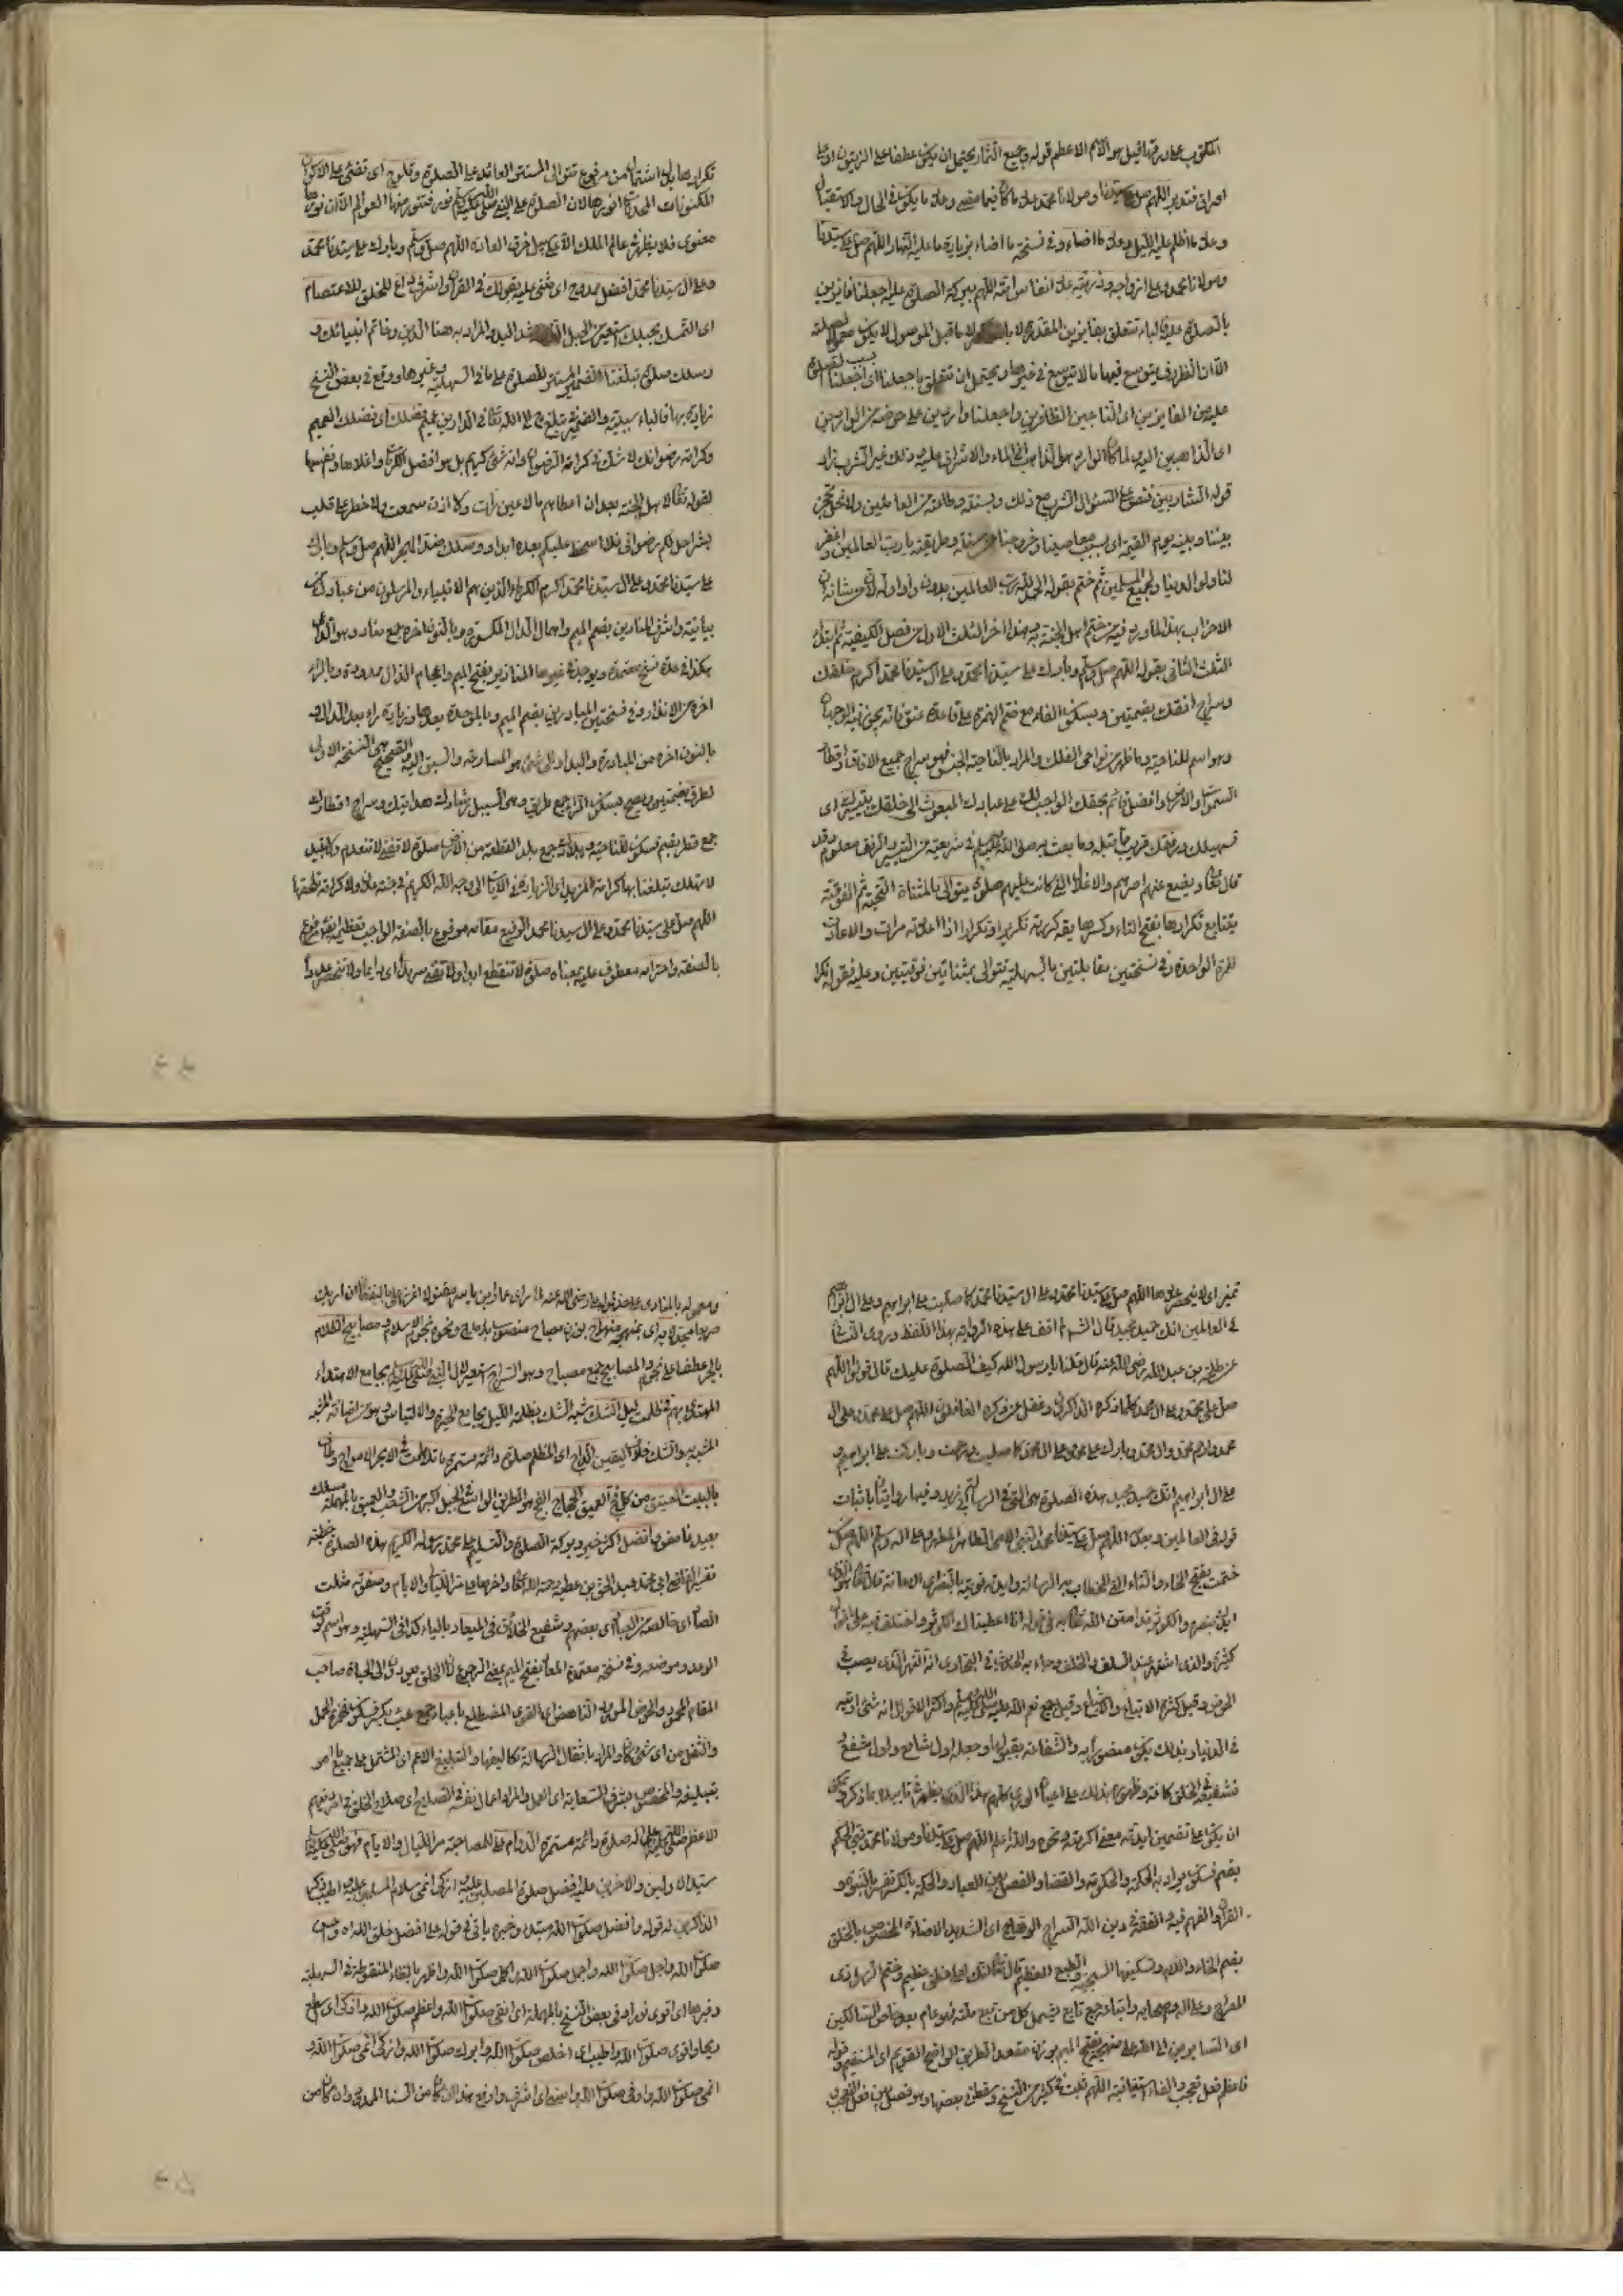 المكتوب على ورقها قيل هو الاسم الاعظم قوله وجميع الثمار يحتمل ان يكون عطفا على الزيتون او على
اوراق فتدبر اللهم صل على سيدنا ومولانا محمد عدد ما كان فيما مضى وعدد ما يكون في الحال والاستقبال
وعدد ما اظلم عليه الليل وعدد ما اضاء وفي نسخة ما اضاء بزيادة ما عليه النهار اللهم صل على سيدنا
ومولانا محمد وعلى ازواجه وذريته عدد انفاس امته اللهم ببركة الصلوة عليه اجعلنا فائزين
بالصلوة عليه فالباء تتعلق بفائزين المقدرة لا لان ما قبل الموصول لا يكون معمولا لصلته
الا ان الظروف يتوسع فيها ما لا يتوسع في غيرها ويحتمل ان تتعلق باجعلنا اى اجعلنا بسبب الصلوة
عليه من الفايزين اى الناجين الظافرين واجعلنا واردين على حوضه من الواردين
اى الذاهبين اليه لما كان الوارد هو الذاهب الى الماء والاشراف عليه وذلك غير الشرب زاد
قوله الشاربين فنص على السؤال الشرب مع ذلك وبسنته وطاعته من العاملين ولا تحل
بيننا وبينه يوم القيمة اى بسبب معاصينا وخروجنا عن سنته وطريقته يا رب العالمين واغفر
لنا ولوالدينا ولجميع المسلمين ثم ختم بقوله الحمد لله رب العالمين بدون واو اوله لان من شانه
الاحزاب بهذا لما ورد فيه من ختم اهل الجنة به وهنا اخر الثلث الاول من فصل الكيفية ثم بدأ
الثلث الثانى بقوله اللهم صل وسلم وبارك على سيدنا محمد وعلى ال سيدنا محمد اكرم خلقك
وسراج افقك بضمتين وبسكون الفاء مع ضم الهمزة على قاعدة عنق فانه يجوز فيه الوجهان
وهو اسم للناحية وما ظهر من نواحى الفلك والمراد بالناحية الجنس فهو سراج جميع الافاق واقطار
السموات والارض وافضل قائم بحقك الواجب لك على عبادك المبعوث الى خلقك بتيسيرك اى
تسهيلك ورفقك قريب مما قبله وما بعث به صلى الله عليه وسلم في شريعته من التيسير الرفق معلوم وقد
قال تعالى ويضع عنهم اصرهم والاغلال التى كانت عليهم صلوة يتوالى بالمثناة التحتية ثم الفوقية
يتتابع تكرارها بفتح التاء وكسرها يقال كررته تكريرا وتكرارا اذا اعدته مرات والاعادة
للمرة الواحدة وفي نسختين مقابلتين بالسهلية تتوالى بمثناتين فوقيتين وعليه فقوله تكرا
تكرارها بدل اشتمال من مرفوع تتوالى المستتر العائد على الصلوة وتلوح اى تضئ على الاكوان
المكنونات المحدثات انوارها لان الصلوة على النبى صلى الله عليه وسلم نور فتتنور منها العوالم الا ان نورها
معنوى فلا يظهر في عالم الملك الا على سبيل خرق العادة اللهم صل وسلم وبارك على سيدنا محمد
وعلى ال سيدنا محمد افضل ممدوح اى مثنى عليه بقولك في القران واشرف داع للخلق للاعتصام
اى التمسك بحبلك استعير من الحبل الذى يشد اليد والمراد به هنا الدين وخاتم انبيائك و
رسلك صلوة تبلغنا الضمير المستتر للصلوة على ما في السهلية وغيرها ووقع في بعض النسخ
زيادة بها فالباء سببية والضمير في تبلغ ح لله تعالى في الدارين عميم فضلك اى فضلك العميم
وكرامة رضوانك لا شك في كرامة الرضوان وانه شئ كريم بل هو افضل الكرامات واعلاها وانفسها
لقوله تعالى لاهل الجنة بعد ان اعطاهم ما لا عين رات ولا اذن سمعت ولا خطر على قلب
بشر احل لكم رضوانى فلا اسخط عليكم بعده ابدا ووصلك ضد الهجر اللهم صل وسلم وبارك
على سيدنا محمد وعلى ال سيدنا محمد اكرم الكرماء الذين هم الانبياء والمرسلون من عبادك من
بيانية واشرف المنادين بضم الميم واهمال الدال المكسورة وبالنون اخره جمع مناد وهو الداعى
هكذا في عدة نسخ معتمدة ويوجد في غيرها المناذير بفتح الميم واعجام الذال ممدودة وبالراء
اخره من الانذار وفي نسختين المبادرين بضم الميم وبالموحدة بعدها وزيادة راء بعد الدال و
بالنون اخره من المبادرة والبدار الى شئ هو المسارعة والسبق اليه والصحيح هى النسخة الاولى
لطرق بضمتين ويصح بسكون الراء جمع طريق وهى السبيل رشادك هدايتك وسراج اقطارك
جمع قطر بضم فسكون للناحية وبلادك جمع بلد القطعة من الارض صلوة لا تفنى لا تنعدم ولا تبيد
لا تهلك تبلغنا بها كرامة المزيد اى الزيادة في الايات الى وجه الله الكريم في جنة عدن ولا كرامة تلحقها
اللهم صل على سيدنا محمد وعلى ال سيدنا محمد الرفيع مقامه مرفوع بالصفة الواجب تعظيمه مرفوع
بالصفة واحترامه معطوف عليه بمعناه صلوة لا تنقطع ابدا ولا تفنى سرمدا اى دايما ولا تنحصر عددا
تميز اى لا ينحصر عددها اللهم صل على سيدنا محمد وعلى ال سيدنا محمد كما صليت على ابراهيم وعلى ال ابراهيم
في العالمين انك حميد مجيد قال الشيخ لم اقف على هذه الرواية بهذا اللفظ وروى النسائى
عن طلحة بن عبد الله رضى الله عنه قال قلنا يا رسول الله كيف الصلوة عليك قال قولوا اللهم
صل على محمد وعلى ال محمد كلما ذكره الذاكرون وغفل عن ذكره الغافلون اللهم صل على محمد وعلى ال
محمد وارحم محمدا وال محمد وبارك على محمد وعلى ال محمد كما صليت ورحمت وباركت على ابراهيم و
على ال ابراهيم انك حميد مجيد هذه الصلوة هى التى في الرسالة
قوله في العالمين وبعد اللهم صل على سيدنا محمد النبى الامى الطاهر المطهر وعلى اله وسلم اللهم صل على من
ختمت بفتح الخاء والتاء الخطاب به الرسالة وايدته قويته بالنصر اى الاعانة قال تعالى هو الذى
ايدك بنصره والكوثر قد امتن الله تعالى به في قوله انا اعطيناك الكوثر واختلف فيه على اقوال
كثيرة والذى اشتهر عند السلف والخلف وجاء به الحديث في البخارى انه النهر الذى يصب في
الحوض وقيل كثرة الاتباع والاشياع وقيل جميع نعم الله عليه صلى الله عليه وسلم واكثر الاقوال انه شئ اوتيه
في الدنيا والشفاعة بقبولها وجعله اول شافع واول مشفع
ان يكون على تضمين ايدته معنى اكرمته ونحوه والله اعلم اللهم صل على سيدنا ومولانا محمد نبى الحكم
بضم فسكون مراد به الحكمة والحكومة والقضاء والفصل بين العباد والحكمة بالكسر تفسر بالنبوة و
القران والفهم فيه والفقه في دين الله السراج الوهاج اى الشديد الاضاءة المخصوص بالخلق
بضم الخاء واللام وتسكينها السجية والطبع العظيم قال تعالى انك لعلى خلق عظيم وختم الرسل ذى
المعراج وعلى اله وصحابه واتباعه جمع تابع يشمل كل من تبع ملته فهو عام بعد خاص السالكين
اى السايرين الى الله على منهجه بفتح الميم بوزن مقعد الطريق الواضح القويم اى المستقيم وقوله
فاعظم فعل تعجب والفاء استينافية اللهم ثبت في كثير من النسخ وسقط في بعضها وهو فصل بين فعل التعجب
ومعموله بالمنادى
بالجر عطفا على نجوم والمصابيح جمع مصباح وهو السراج استعير لال النبى صلى الله عليه وسلم بجامع الاهتداء
المهتدى بهم في ظلمة ليل الشك شبه الشك بظلمة الليل بجامع الحيرة والالتباس وهو من اضافة المشبه
المشبه به والشك خلاف اليقين الداج اى المظلم صلوة دائمة مستمرة ما تلاطمت في الابحر الامواج وطاف
بالبيت العتيق من كل فج العميق الحجاج الفج هو الطريق الواسع في الجبل اكبر من الشعب والعميق بالمهملة
بعيد غامض وافضل اكثر خيرا وبركة الصلوة والتسليم على محمد رسوله الكريم هذه الصلوة خطبة
تفسير القاضى ابى محمد عبد الحق بن عطية رحمه الله تعالى واخرها ما مر الليالى والايام وصفوته مثلث
الصاد اى خالصه من العباد اى بعضهم وشفيع الخلائق في الميعاد بالياء كذا في السهلية وهو اسم لوقت
الوعد وموضعه وفي نسخة معتمدة المعاد بفتح الميم بمعنى الرجوع لان الخلق يعودون الى الحياة صاحب
المقام المحمود والحوض المورود الناهض اى القوى المضطلع باعباء جمع عبء بكسر فسكون فهمزة الحمل
والثقل من اى شئ كان والمراد باثقال الرسالة تكاليفها والتبليغ الاعم اى المشتمل على جميع ما امر
بتبليغه والمخصوص بشرف السعاية اى العمل والمراد اعمال نفسه في الصلاح اى صلاح الخلق في امر دينهم
الاعظم صلى الله عليه وعلى اله صلوة دائمة مستمرة الدوام على للمصاحبة مر الليالى والايام فهو صلى الله عليه وسلم
سيد الاولين والاخرين عليه افضل صلوة المصلين عليه وازكى انمى سلام المسلمين عليه واطيب ذكر
الذاكرين له قوله وافضل صلوات الله مبتدا وخبره ياتى في قوله على افضل خلق الله واحسن
صلوات الله واجل صلوات الله واجمل صلوات الله واكمل صلوات الله واظهر بالظاء المنقوطة في السهلية
وغيرها اى اقوى نورا وفي بعض النسخ بالمهملة اى انقى صلوات الله واعظم صلوات الله واذكى اى سطع
ريحا واقوى صلوات الله واطيب اى اخلص صلوات الله وابرك صلوات الله وازكى انمى صلوات الله و
انمى صلوات الله واوفى صلوات الله واسنى اى اشرف وارفع هذا ان كان من السناء الممدود وان كان من